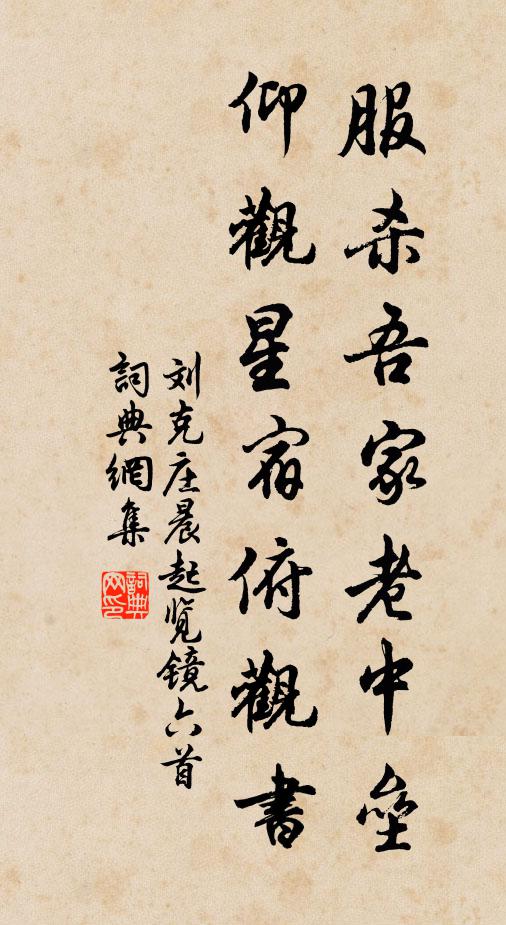 服杀吾家老中垒
仰觀星宿俯觀書
刘克庄晨起览镜六首
詞典網集
詞典网印